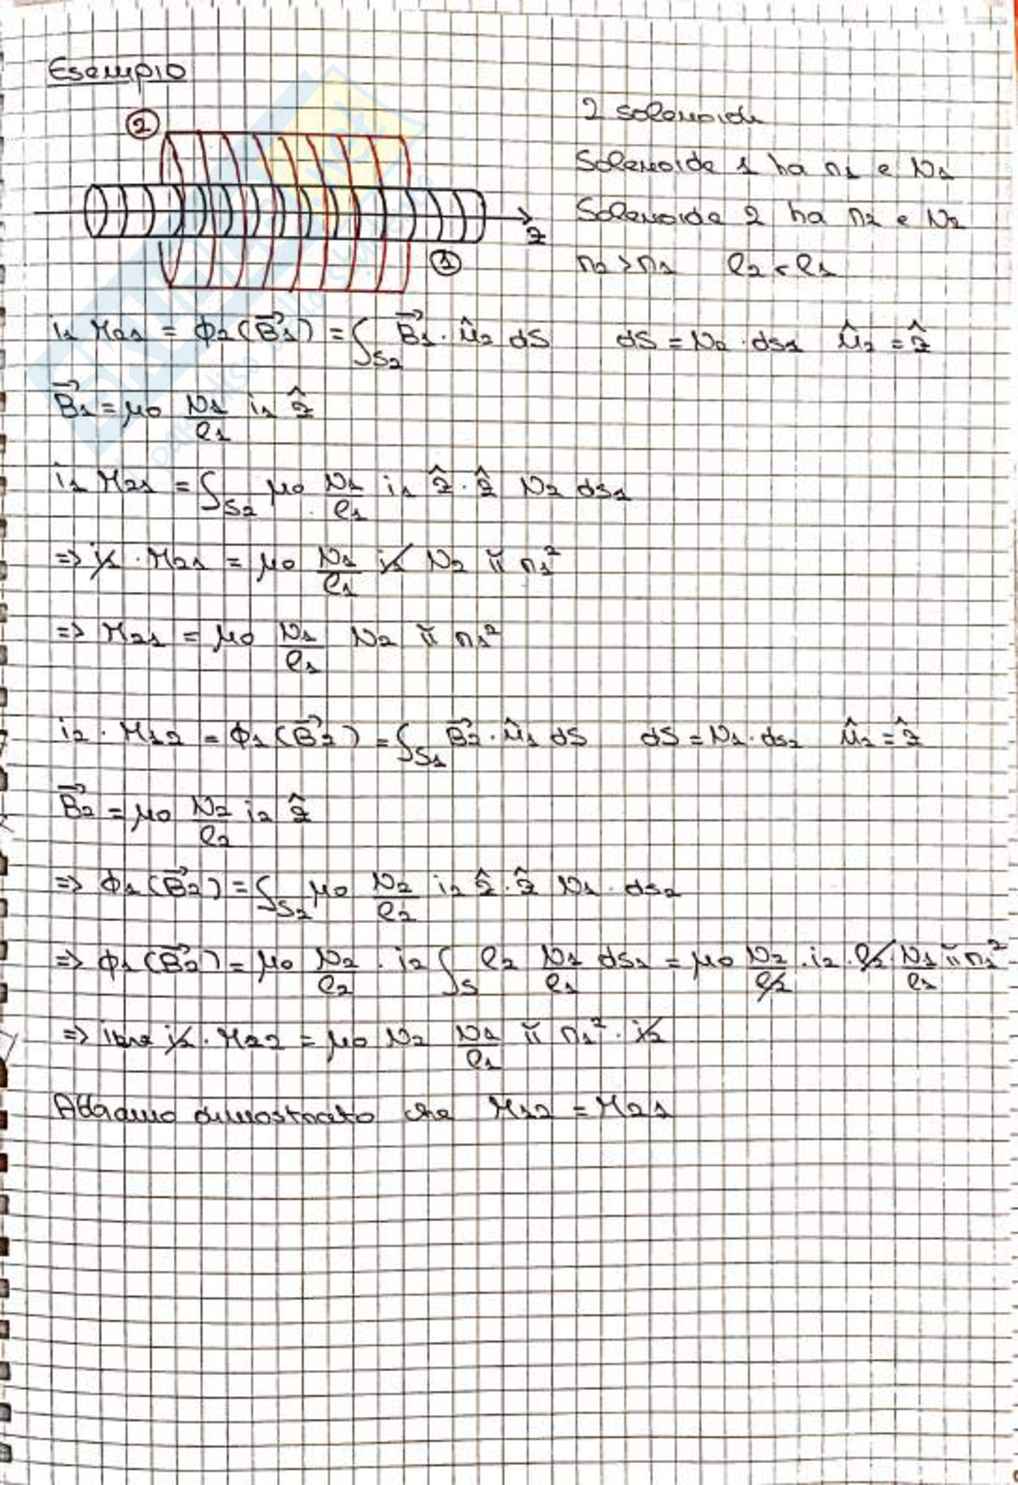 Esempio
②
①
z
2 solenoidi
Solenoide 1 ha r₁ e N₁
Solenoide 2 ha r₂ e N₂
r₂ > r₁   ℓ₂ < ℓ₁
i₁ M₂₁ = Φ₂(B⃗₁) = ∫_S₂ B⃗₁ · û₂ dS   dS = N₂ · ds₁   û₂ = ẑ
B⃗₁ = μ₀ N₁/ℓ₁ i₁ ẑ
i₁ M₂₁ = ∫_S₂ μ₀ N₁/ℓ₁ i₁ ẑ · ẑ N₂ ds₁
=> i₁ · M₂₁ = μ₀ N₁/ℓ₁ i₁ N₂ π r₁²
=> M₂₁ = μ₀ N₁/ℓ₁ N₂ π r₁²
i₂ · M₁₂ = Φ₁(B⃗₂) = ∫_S₁ B⃗₂ · û₁ dS   dS = N₁ · ds₂   û₂ = ẑ
B⃗₂ = μ₀ N₂/ℓ₂ i₂ ẑ
=> Φ₁(B⃗₂) = ∫_S₂ μ₀ N₂/ℓ₂ i₂ ẑ · ẑ N₁ · ds₂
=> Φ₁(B⃗₂) = μ₀ N₂/ℓ₂ · i₂ ∫_S ℓ₂ N₁/ℓ₁ ds₁ = μ₀ N₂/ℓ₂ · i₂ · ℓ₂ N₁/ℓ₁ π r₁²
=> i₂ · M₁₂ = μ₀ N₂ N₁/ℓ₁ π r₁² · i₂
Abbiamo dimostrato che M₁₂ = M₂₁